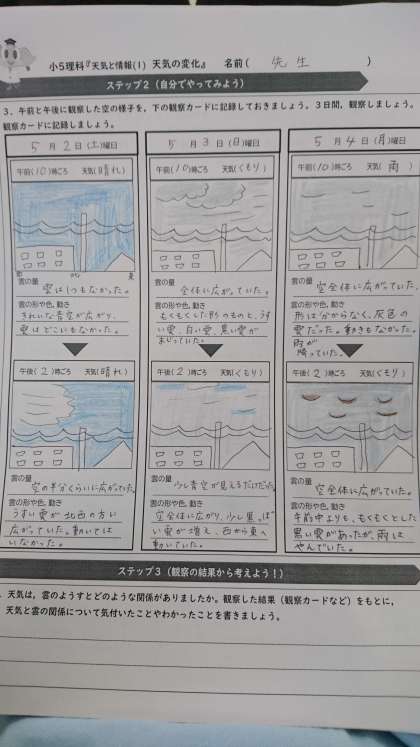 小5理科『天気と情報(1) 天気の変化』 名前( 先生 )
ステップ2(自分でやってみよう)
3．午前と午後に観察した空の様子を、下の観察カードに記録しておきましょう。3日間、観察しましょう。
観察カードに記録しましょう。
5月2日(土)曜日
午前(10)時ごろ 天気(晴れ)
雲の量
雲は1つもなかった。
雲の形や色、動き
きれいな青空が広がり、
雲はどこにもなかった。
午後(2)時ごろ 天気(晴れ)
雲の量
空の半分くらいに広がっていた。
雲の形や色、動き
うすい雲が北西の方に
広がっていた。動いては
いなかった。
5月3日(日)曜日
午前(10)時ごろ 天気(くもり)
雲の量
全体に広がっていた。
雲の形や色、動き
もくもくした形のものと、うす
い雲、白い雲、黒い雲が
まじっていた。
午後(2)時ごろ 天気(くもり)
雲の量
少し青空が見えるだけだった。
雲の形や色、動き
空全体に広がり、少し黒っぽ
い雲が増え、西から東へ
動いていた。
5月4日(月)曜日
午前(10)時ごろ 天気(雨)
雲の量
空全体に広がっていた。
雲の形や色、動き
形は分からなく、灰色の
雲だった。動きもなかった。
雨が
降っていた。
午後(2)時ごろ 天気(くもり)
雲の量
空全体に広がっていた。
雲の形や色、動き
午前中よりも、もくもくとした
黒い雲があったが、雨は
やんでいた。
ステップ3(観察の結果から考えよう！)
．天気は、雲のようすとどのような関係がありましたか。観察した結果(観察カードなど)をもとに、
天気と雲の関係について気付いたことやわかったことを書きましょう。